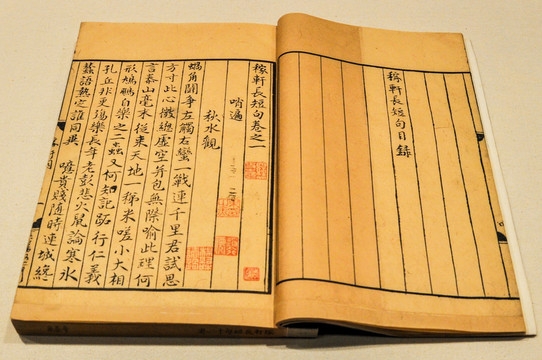 稼軒長短句目錄
稼軒長短句卷之一
哨遍
秋水觀
蝸角鬬爭左觸右蠻一戰連千里君試思
方寸此心微總虛空并包無際喻此理何
言泰山毫末從來天地一稊米嗟小大相
形鳩鵬自樂之二蟲又何知記跖行仁義
孔丘非更殤樂長年老彭悲火鼠論寒冰
蠶語熱定誰同異 噫貴賤隨時連城纔